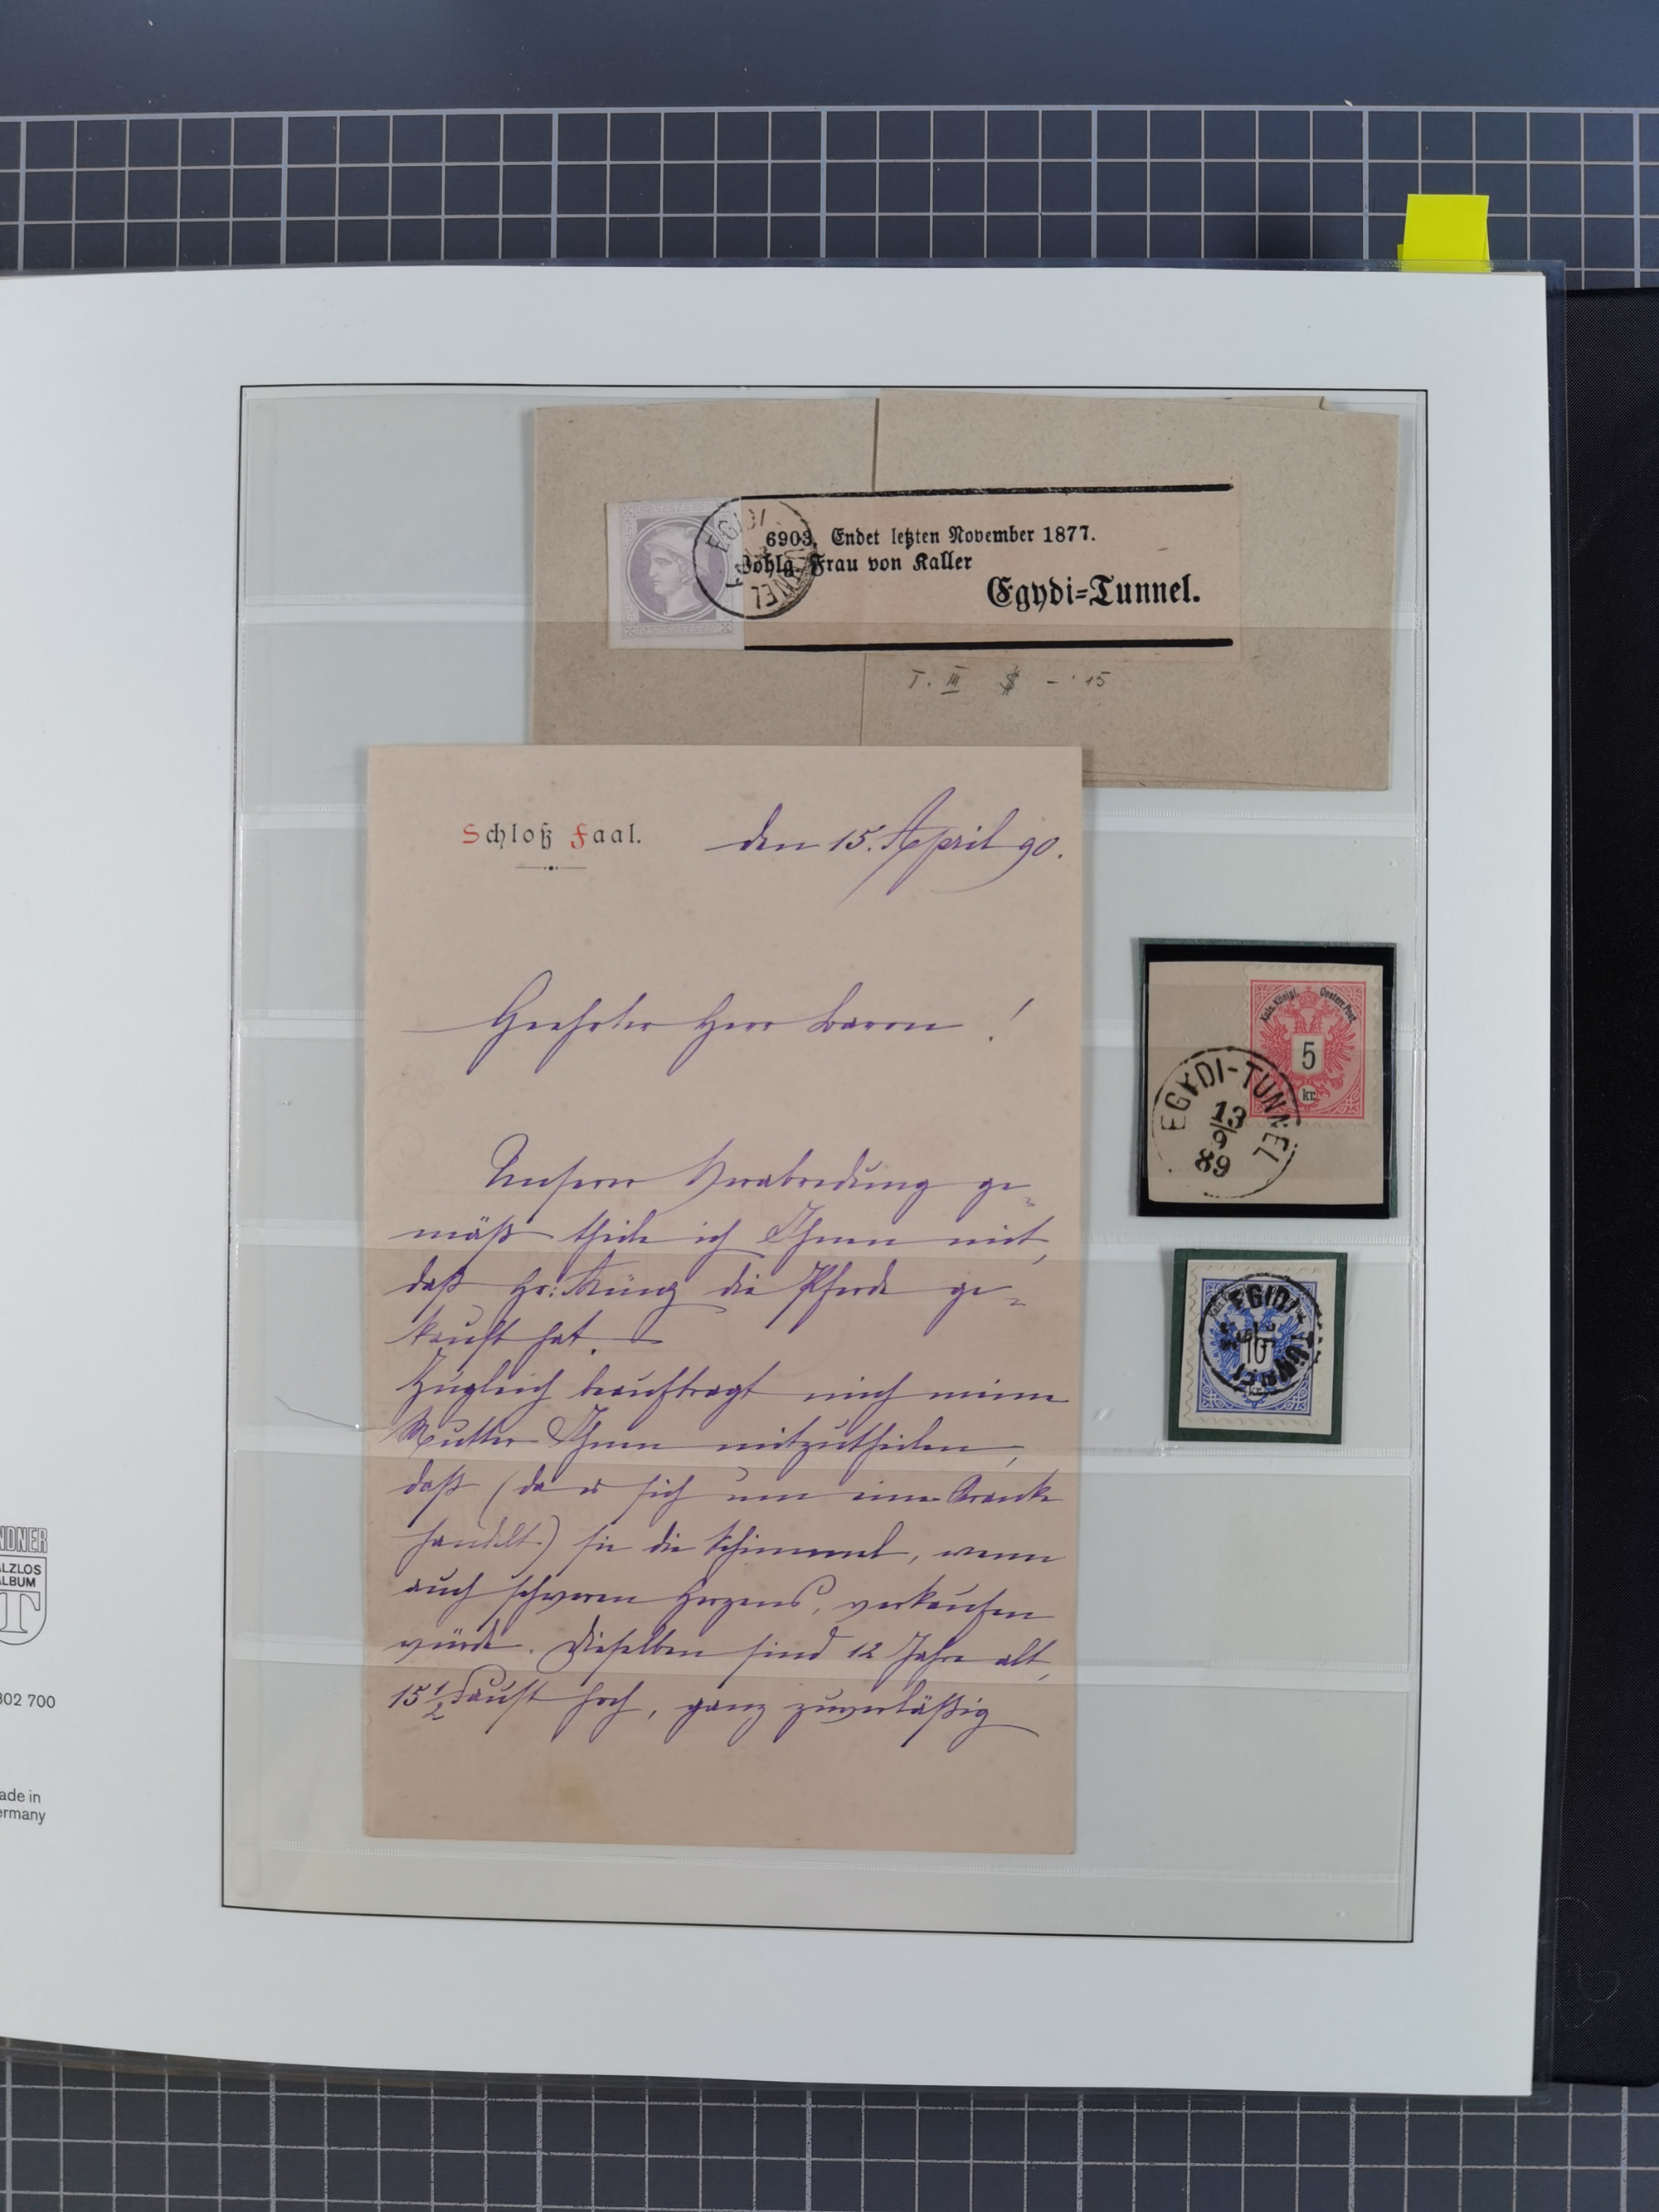 EGIDI TUNNEL
6903. Endet letzten November 1877.
Wohlg. Frau von Kaller
Egydi-Tunnel.
T. III $ –·15
Schloß Faal.
den 15. April 90.
Geehrter Herr Baron !
Unserer Verabredung ge-
mäß theile ich Ihnen mit,
daß Hr. die Pferde ge-
kauft hat. –
Zugleich beauftragt mich meine
Mutter Ihnen mitzutheilen,
daß (da es sich um eine Kranke
handelt) sie die Schimmel, wenn
auch schweren Herzens, verkaufen
würde. Dieselben sind 12 Jahre alt,
15 1/2 Faust hoch, ganz zuverläßig
Kais. Königl. Oesterr. Post.
5
kr.
EGYDI-TUNNEL
13
9
89
EGIDI-TUNNEL
10
kr.
NDNER
ALZLOS
ALBUM
T
802 700
ade in
ermany